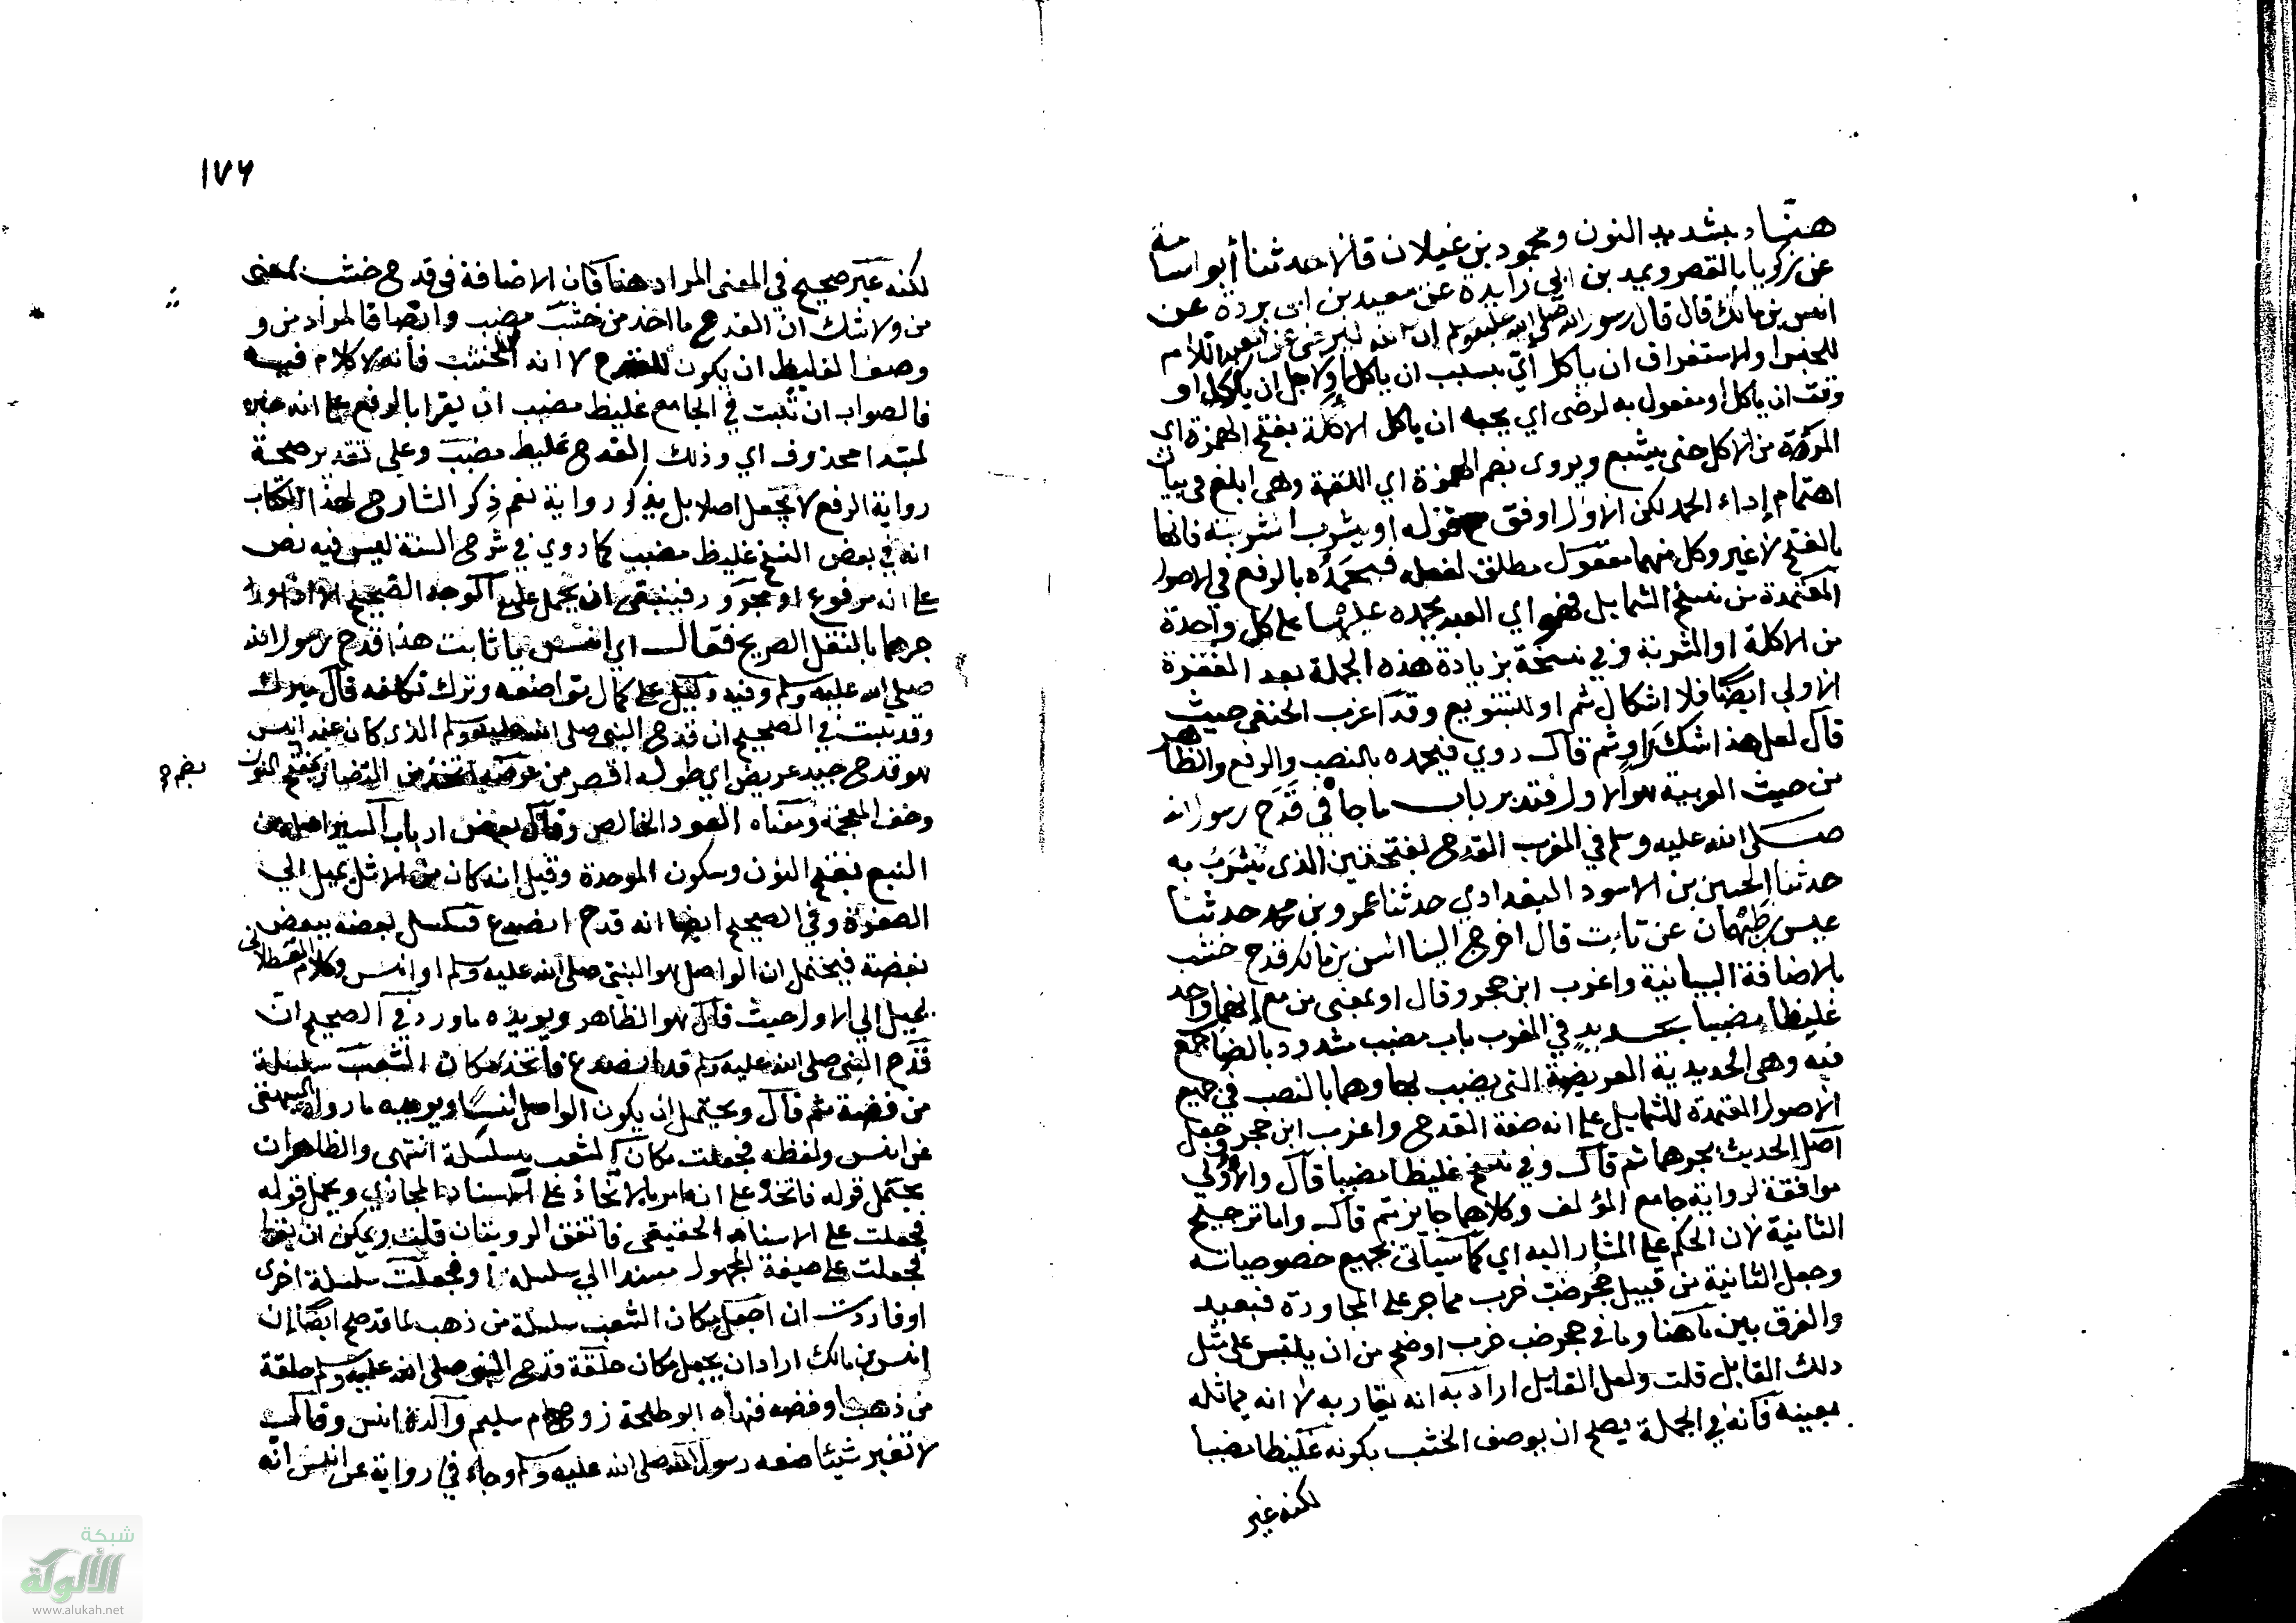 هنّاد بتشديد النون ومحمود بن غيلان قالا حدثنا أبو اسامة
عن زكريا بالقصر ويمد بن ابي زايدة عن سعيد بن ابي بردة عن
انس بن مالك قال قال رسول الله صلى الله عليه وسلم ان الله ليرضى عن العبد اللام
للجنس او للاستغراق ان ياكل اي بسبب ان ياكل او لاجل ان ياكل او
وقت ان ياكل او مفعول به ليرضى اي يحبه ان ياكل الاكلة بفتح الهمزة اي
المرّة من الاكل حتى يشبع ويروى بضم الهمزة اي اللقمة وهي ابلغ في بيان
اهتمام إداء الحمد لكن الاول اوفق مع قوله او يشرب الشربة فانها
بالفتح لا غير وكل منهما مفعول مطلق لفعله فيحمدُه بالرفع في الاصول
المعتمدة من نسخ الشمايل فهو اي العبد يحمده عليها على كل واحدة
من الاكلة او الشربة وفي نسخة بزيادة هذه الجملة بعد الفقرة
الاولى ايضا فلا اشكال ثم او للتنويع وقد اغرب الحنفي حيث
قال لعل هذا شك راو ثم قال روي فيحمده بالنصب والرفع والظاهر
من حيث العربية هو الاول فتدبر باب ما جا في قدح رسول الله
صلى الله عليه وسلم في المغرب القدح بفتحتين الذى يُشرَبُ به
حدثنا الحسين بن الاسود البغدادي حدثنا عمرو بن محمد حدثنا
عيسى بن طهمان عن ثابت قال اخرج الينا انس بن مالك قدح خشب
بالاضافة البيانية واغرب ابن حجر وقال او بمعنى من مع إنهما واحد
غليظا مضببا بحديدٍ في المغرب باب مضبب مشدود بالضباب جمع
ضبة وهي الحديدية العريضة التي يضبب بها وهما بالنصب في جميع
الاصول المعتمدة للشمايل على انه صفة القدح واغرب ابن حجر وجعل
اصل الحديث بجرهما ثم قال وفي نسخ غليظا مضببا قال والاولى
موافقة لرواية جامع المؤلف وكلاهما جايز ثم قال واما ترجيح
الثانية لان الحكم على المشار اليه اي كما سيأتي بجميع خصوصياته
وجعل الثانية من قبيل جحر ضب خرب مما جر على المجاورة فبعيد
والفرق بين ما هنا وما في جحر ضب خرب اوضح من ان يلتبس على مثل
ذلك القايل قلت ولعل القايل اراد به انه يقاربه لا انه يماثله
بعينه فانه في الجملة يصلح ان يوصف الخشب بكونه غليظا مضببا
لكنه غير
١٧٦
لكنه غير صحيح في المعنى المراد هنا فان الاضافة في قدح خشب بمعنى
من ولا شك ان القدح ما اخذ من خشب مضبب وايضا فالمراد من
وصف الغليظ ان يكون للقدح لا انه للخشب فانه لا كلام فيه
فالصواب ان ثبت في الجامع غليظ مضبب ان يقرا بالرفع على انه خبر
لمبتدا محذوف اي وذلك القدح غليظ مضبب وعلى تقدير صحة
رواية الرفع لا يجعل اصلا بل يذكر رواية نعم ذكر الشارح لهذا الكتاب
انه في بعض النسخ غليظ مضبب كما روي في شرح السنة ليس فيه نص
على انه مرفوع او مجرور فينبغي ان يحمل على الوجه الصحيح الا اذا ورد
جرهما بالنقل الصريح فقال اي انس يا ثابت هذا قدح رسول الله
صلى الله عليه وسلم وفيه دليل على كمال تواضعه وترك تكلفه قال ميرك
وقد ثبت في الصحيح ان قدح النبي صلى الله عليه وسلم الذي كان عند انس
هو قدح جيد عريض اي طوله اقصر من عرضه اتخذ من النضار بفتح النون
بضم
وخف المعجمة ومعناه العود الخالص وقال بعض ارباب السير اصله من
النبع بفتح النون وسكون الموحدة وقيل انه كان من الاثل يميل الى
الصفرة وفي الصحيح ايضا انه قدح انصدع فسلسل بعضه ببعض
بفضة فيحتمل ان الواصل هو النبي صلى الله عليه وسلم او انس وكلام القسطلاني
يميل الى الاول حيث قال هو الظاهر ويويده ما ورد في الصحيح ان
قدح النبي صلى الله عليه وسلم قد انصدع فاتخذ مكان الشعب سلسلة
من فضة ثم قال ويحتمل ان يكون الواصل انسا ويويده ما رواه البيهقي
عن انس ولفظه فجعلت مكان الشعب سلسلة انتهى والظاهر ان
يحتمل قوله فاتخذ على انه امر بالاتخاذ على الاسناد المجازي ويحمل قوله
فجعلت على الاسناد الحقيقي فاتفق الروايتان قلت ويمكن ان يقرا
فجعلت على صيغة المجهول مسندا الى سلسلة او فجعلت سلسلة اخرى
او فاردت ان اجعل مكان الشعب سلسلة من ذهب لما قد صح ايضا إن
إنس بن مالك اراد ان يجعل مكان حلقة قدح النبي صلى الله عليه وسلم حلقة
من ذهب او فضة فنهاه ابو طلحة زوج ام سليم والدة انس وقال
لا تغير شيئا صنعه رسول الله صلى الله عليه وسلم وجاء في رواية عن انس انه
شبكة
الألوكة
www.alukah.net